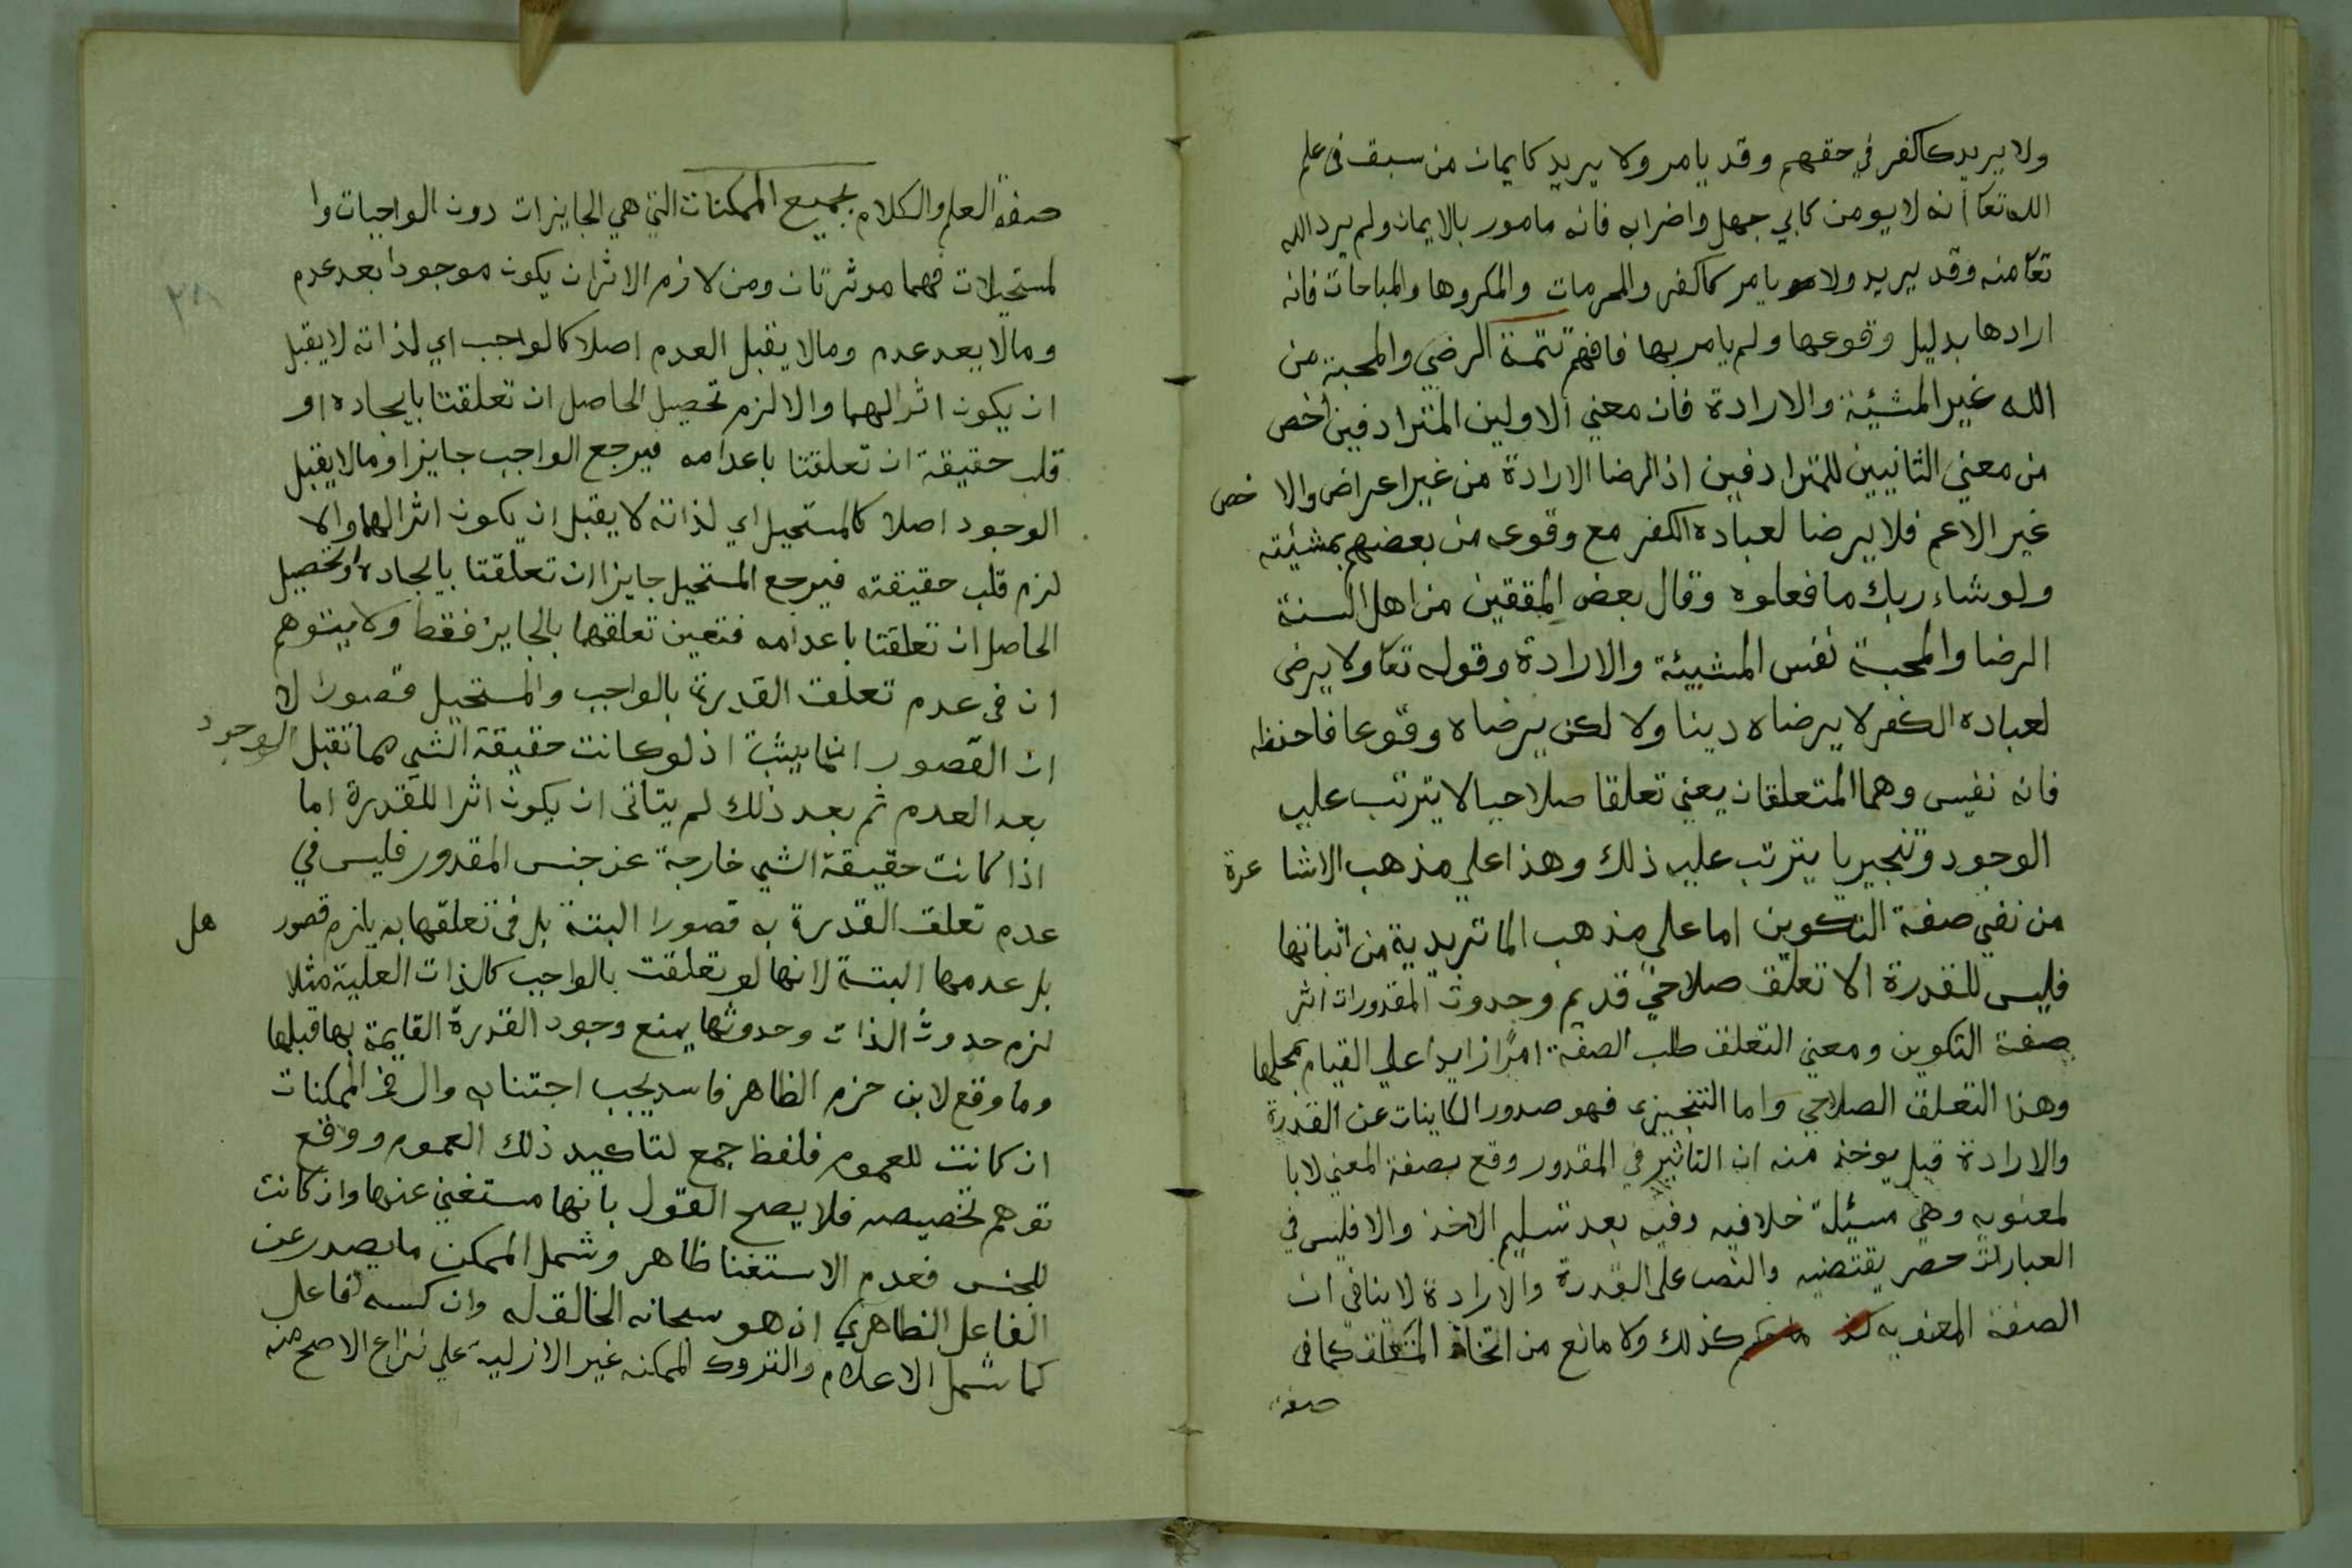 ولا يريد كالكفر في حقهم وقد يامر ولا يريد كايمان من سبق فى علم
الله تعا انه لا يومن كابي جهل واضرابه فانه مامور بالايمان ولم يرد الله
تعا منه وقد يريد ولا يامر كالكفر والمحرمات والمكروها والمباحات فانه
ارادها بدليل وقوعها ولم يامر بها فافهم تتمة الرضي والمحبة من
الله غير المشئية والارادة فان معني الاولين المترادفين اخص
من معني الثانيين المترادفين اذ الرضا الارادة من غير اعتراض والا خص
غير الاعم فلا يرضا لعباده الكفر مع وقوعه من بعضهم بمشئيته
ولو شاء ربك ما فعلوه وقال بعض المققين من اهل السنة
الرضا والمحبة نفس المشيئة والارادة وقوله تعا ولا يرضى
لعباده الكفر لا يرضاه دينا ولا لكن يرضاه وقوعا فاحفظه
فانه نفيس وهما المتعلقان يعني تعلقا صلاحيا لا يترتب عليه
الوجود وتنجيريا يترتب عليه ذلك وهذا علي مذهب الاشا عرة
من نفي صفة التكوين اما على مذهب الماتريدية من اثباتها
فليس للقدرة الا تعلق صلاحي قديم وحدوث المقدورات اثر
صفة التكوين ومعني التعلق طلب الصفة امرًا زايدا علي القيام بمحلها
وهذا التعلق الصلاحي واما التنجيزى فهو صدور الكاينات عن القدرة
والارادة قيل يوخذ منه ان التاثير في المقدور وقع بصفة المعني لا با
لمعنويه وهي مسيلة خلافيه وفيه بعد تسليم الاخذ والا فليس في
العبارات حصر يقتضيه والنص على القدرة والارادة لا ينافي ان
الصفة المعنويه كذلك ولا مانع من اتخاذ المتعلق كما فى
صفة
صفة العلم والكلام بجميع الممكنات التي هي الجايزات دون الواجبات وا
لمستحيلات فهما موثرتان ومن لازم الاثر ان يكون موجودا بعد عدم
وما لا بعد عدم وما لا يقبل العدم اصلا كالواجب اي لذاته لا يقبل
ان يكون اثرا لهما والا لزم تحصيل الحاصل ان تعلقتا بايجاده او
قلب حقيقة ان تعلقتا باعدامه فيرجع الواجب جايزا وما لا يقبل
الوجود اصلا كالمستحيل اي لذاته لا يقبل ان يكون اثرا لهما والا
لزم قلب حقيقته فيرجع المستحيل جايزا ان تعلقتا بايجاده او تحصيل
الحاصل ان تعلقتا باعدامه فتعين تعلقهما بالجايز فقط ولا يتوهم
ان فى عدم تعلق القدرة بالواجب والمستحيل قصورا لا
ان القصور انما يثبت اذ لو كانت حقيقة الشي مما تقبل الوجود
بعد العدم ثم بعد ذلك لم يتاتى ان يكون اثرا للقدرة اما
اذا كانت حقيقة الشي خارجة عن جنس المقدور فليس في
عدم تعلق القدرة به قصورا البتة بل فى تعلقها به يلزم قصور هل
بل عدمها البتة لانها لو تعلقت بالواجب كالذات العلية مثلا
لزم حدوث الذات وحدوثها يمنع وجود القدرة القايمة بها قبلها
وما وقع لابن حزم الظاهر فاسد يجب اجتنابه وال في الممكنات
ان كانت للعموم فلفظ جمع لتاكيد ذلك العموم ووقع
توهم تخصيصه فلا يصح القول بانها مستغني عنها وان كانت
للجنس فعدم الاستغنا ظاهر وشمل الممكن ما يصدر عن
الفاعل الظاهري ان هو سبحانه الخالق له وان كسبه لفاعل
كما شمل الاعلام والتروك الممكنه غير الازلية علي نزاع الاصح منه
٢٨